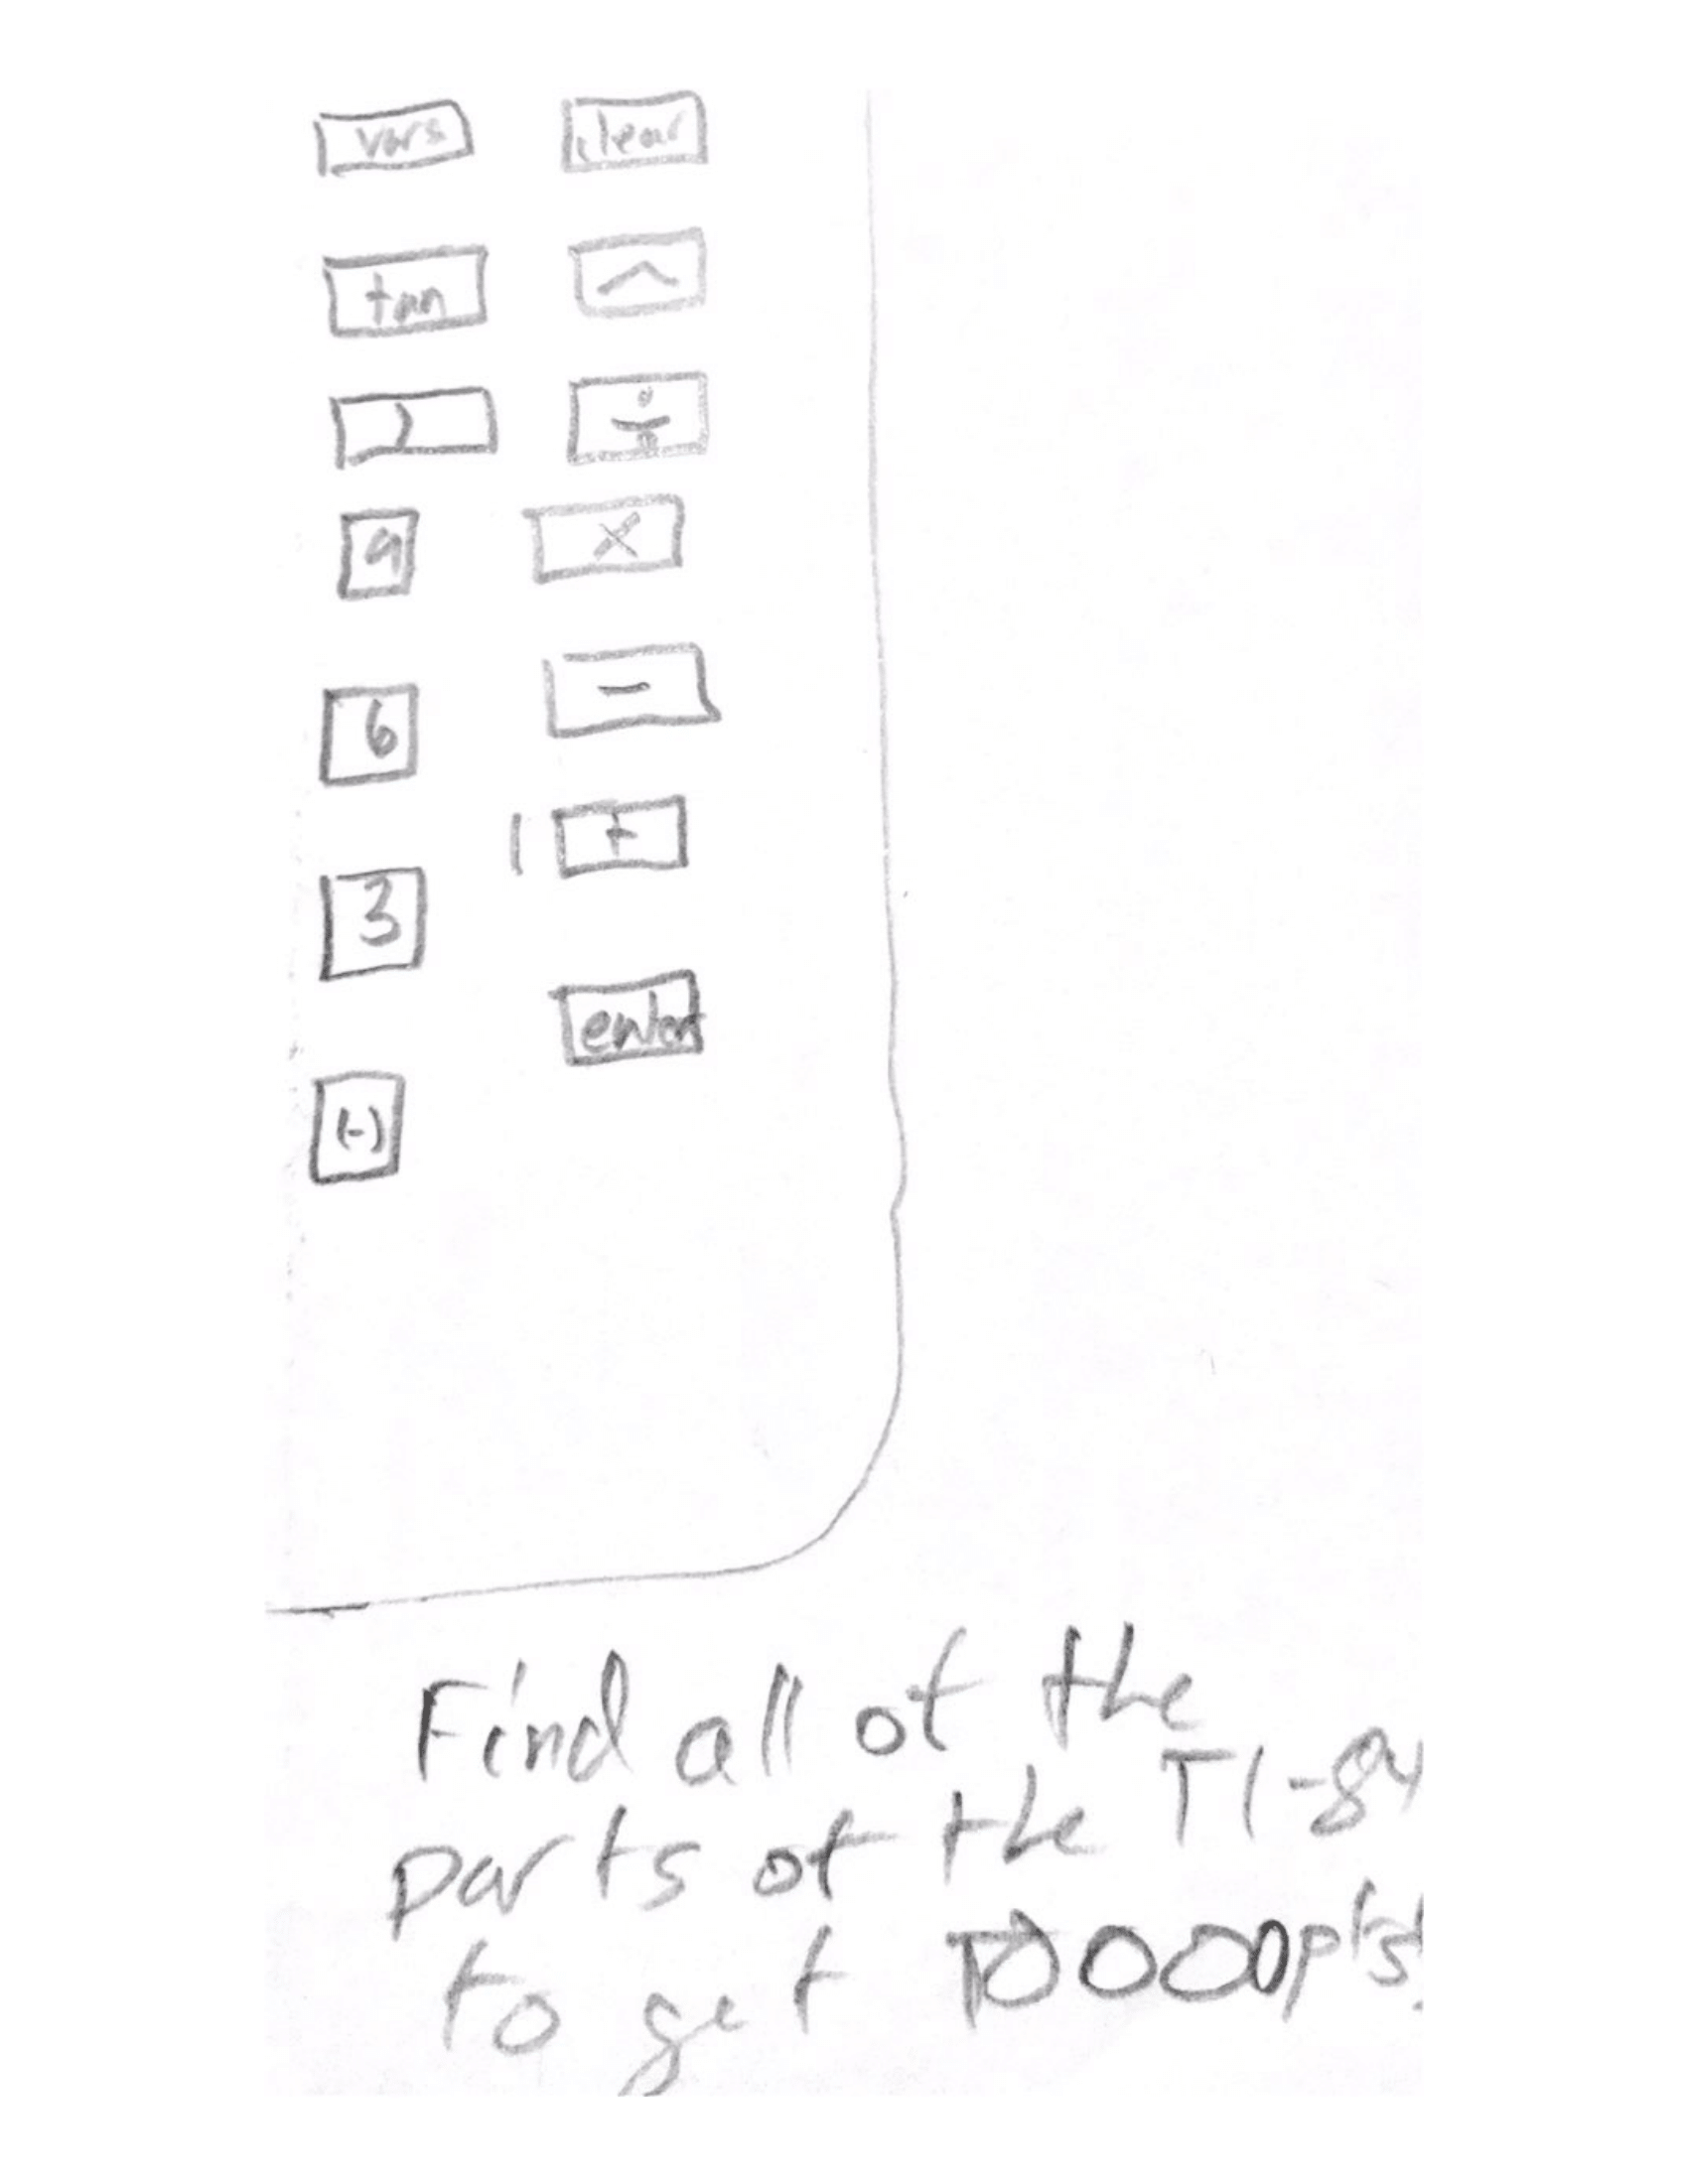 vars clear
tan ^
) ÷
9 ×
6 -
3 +
enter
(-)
Find all of the
parts of the TI-84
to get 10000pts!